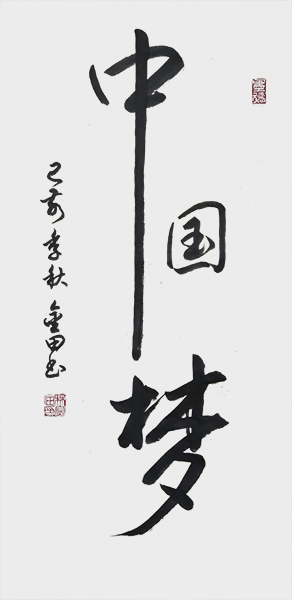 中国梦
己亥季秋金田书